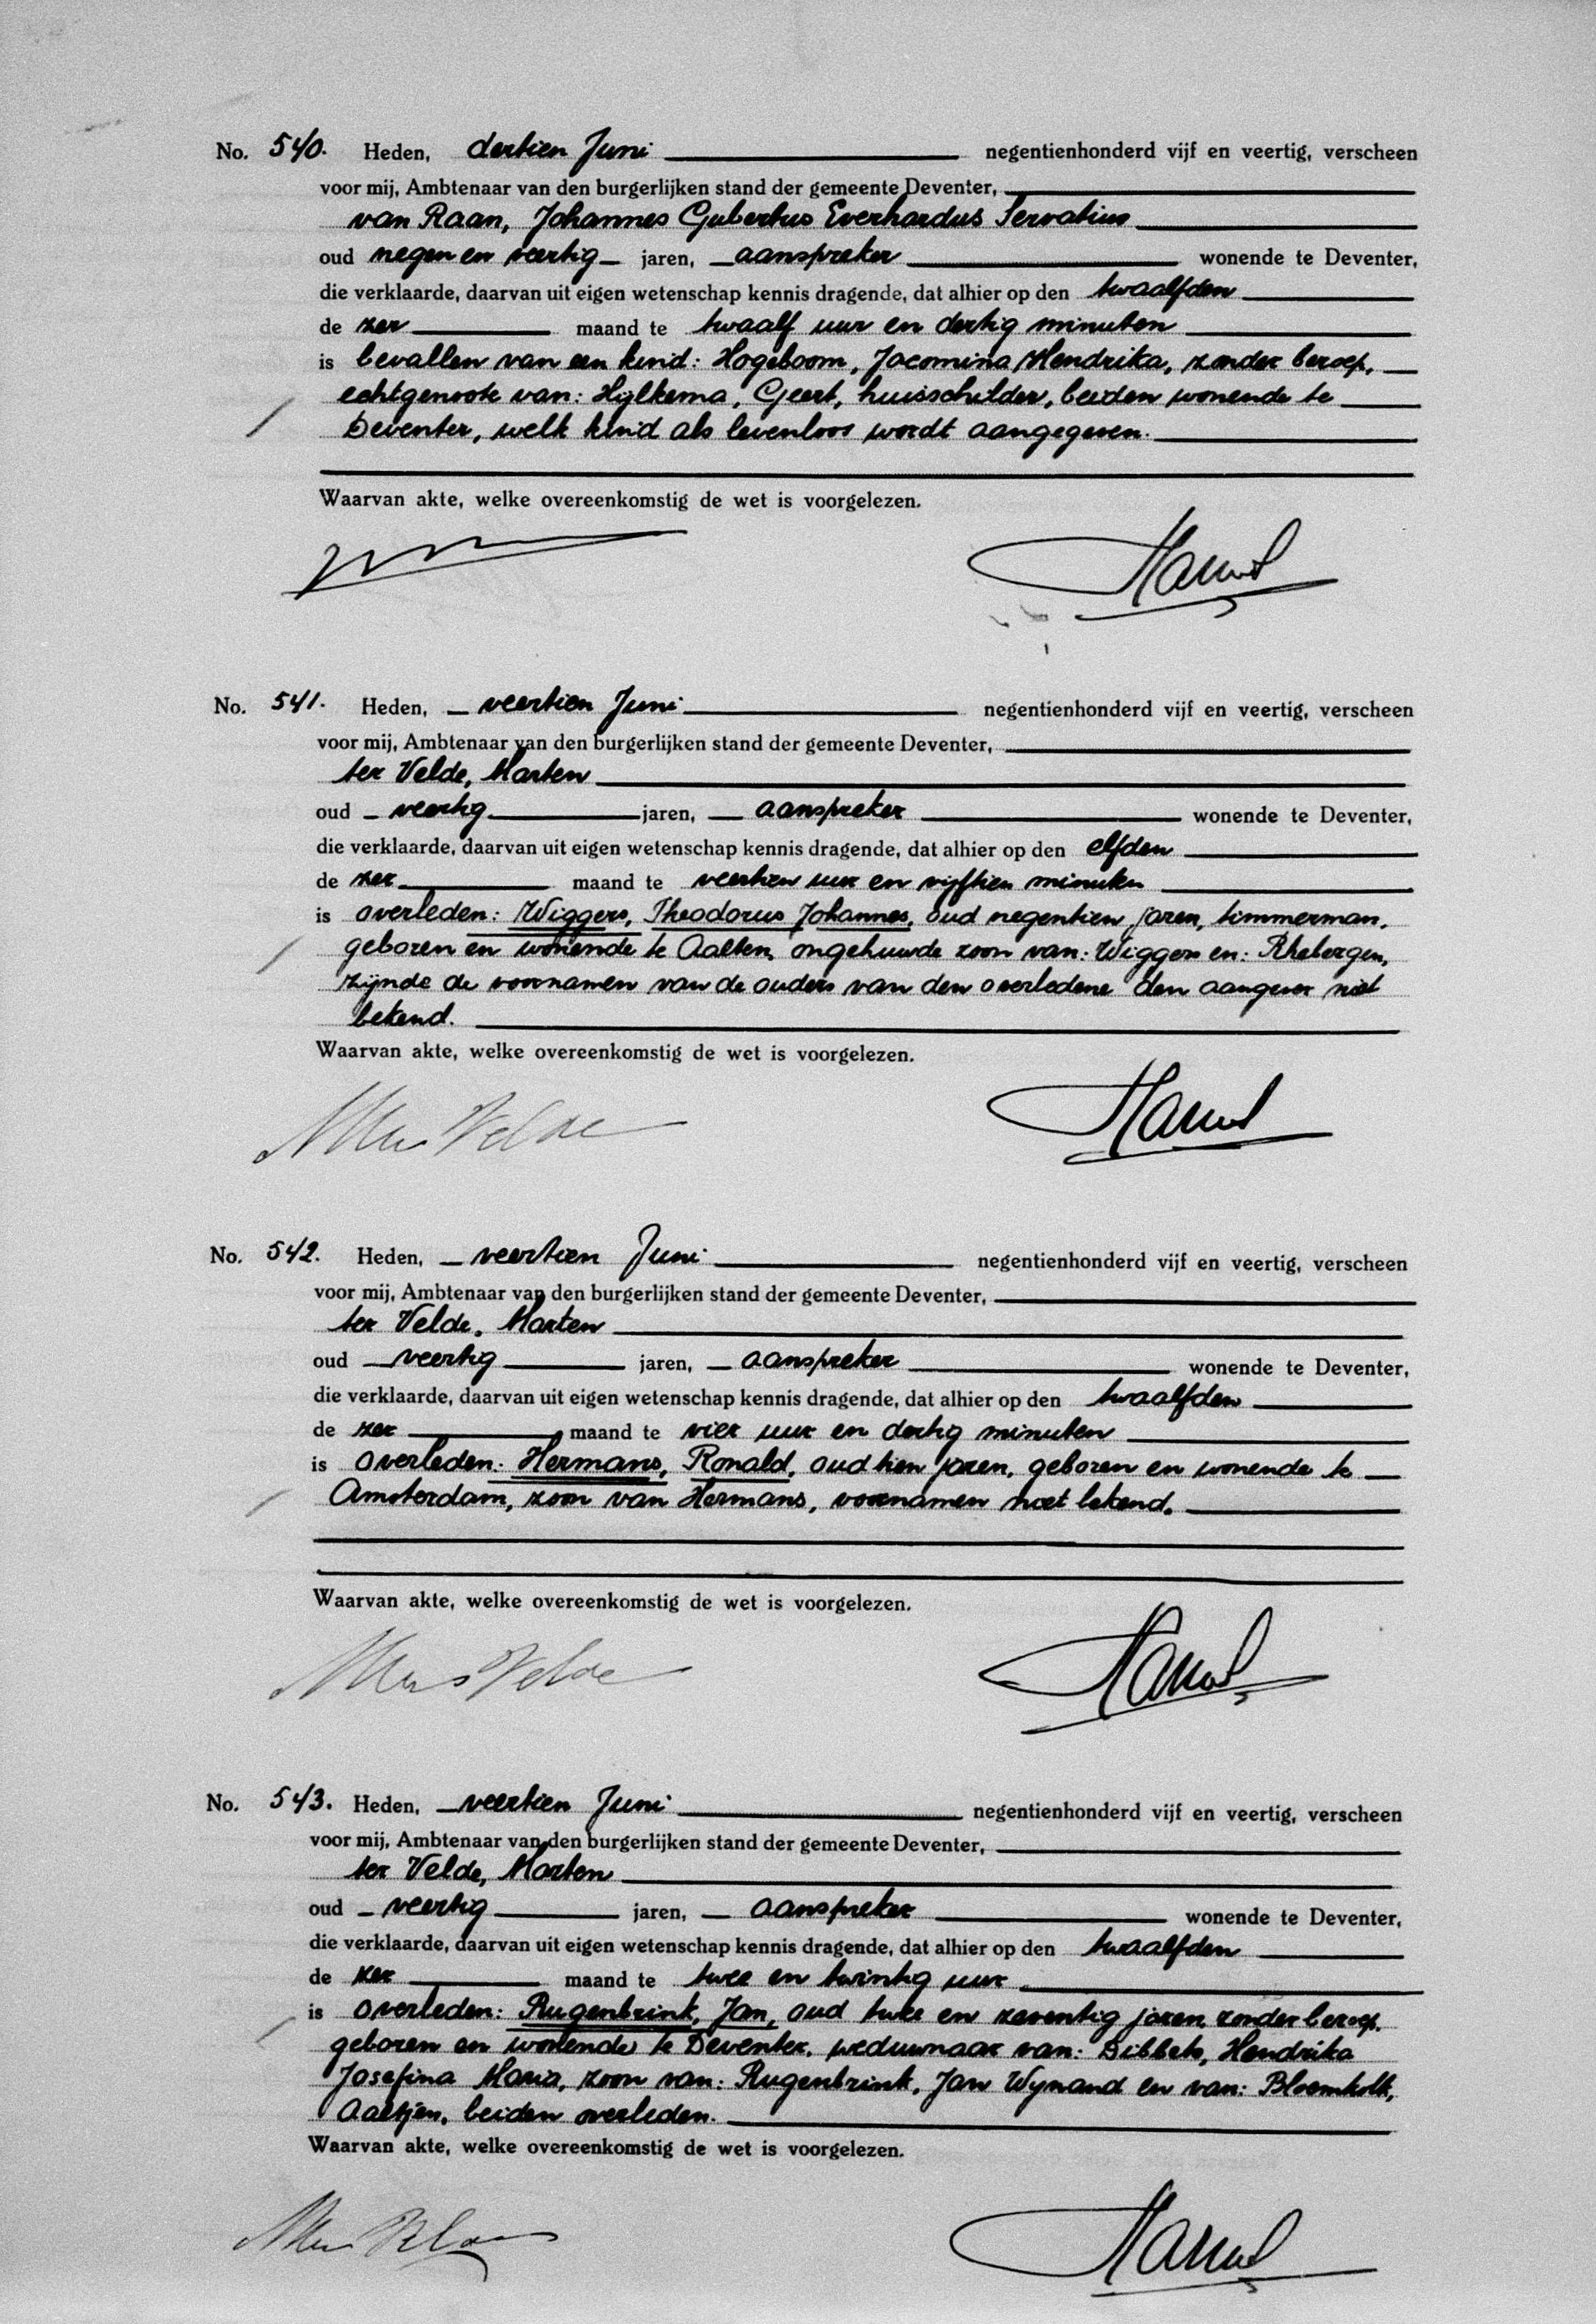 No. 540. Heden, dertien Juni negentienhonderd vijf en veertig, verscheen
voor mij, Ambtenaar van den burgerlijken stand der gemeente Deventer,
van Raan, Johannes Gijbertus Everhardus Servatius
oud negen en veertig jaren, aanspreker wonende te Deventer,
die verklaarde, daarvan uit eigen wetenschap kennis dragende, dat alhier op den twaalfden
de zer maand te twaalf uur en dertig minuten
is bevallen van een kind: Hogeboom, Jacomina Hendrika, zonder beroep,
echtgenoote van: Hijlkema, Geert, huisschilder, beiden wonende te
Deventer, welk kind als levenloos wordt aangegeven.
Waarvan akte, welke overeenkomstig de wet is voorgelezen.
No. 541. Heden, veertien Juni negentienhonderd vijf en veertig, verscheen
voor mij, Ambtenaar van den burgerlijken stand der gemeente Deventer,
ter Velde, Marten
oud veertig jaren, aanspreker wonende te Deventer,
die verklaarde, daarvan uit eigen wetenschap kennis dragende, dat alhier op den elfden
de zer maand te veertien uur en vijftien minuten
is overleden: Wiggers, Theodorus Johannes, oud negentien jaren, timmerman,
geboren en wonende te Aalten, ongehuwde zoon van: Wiggers en: Rhebergen,
zijnde de voornamen van de ouders van den overledene den aangever niet
bekend.
Waarvan akte, welke overeenkomstig de wet is voorgelezen.
M ter Velde
No. 542. Heden, veertien Juni negentienhonderd vijf en veertig, verscheen
voor mij, Ambtenaar van den burgerlijken stand der gemeente Deventer,
ter Velde, Marten
oud veertig jaren, aanspreker wonende te Deventer,
die verklaarde, daarvan uit eigen wetenschap kennis dragende, dat alhier op den twaalfden
de zer maand te vier uur en dertig minuten
is overleden: Hermans, Ronald, oud tien jaren, geboren en wonende te
Amsterdam, zoon van Hermans, voornamen niet bekend.
Waarvan akte, welke overeenkomstig de wet is voorgelezen.
M ter Velde
No. 543. Heden, veertien Juni negentienhonderd vijf en veertig, verscheen
voor mij, Ambtenaar van den burgerlijken stand der gemeente Deventer,
ter Velde, Marten
oud veertig jaren, aanspreker wonende te Deventer,
die verklaarde, daarvan uit eigen wetenschap kennis dragende, dat alhier op den twaalfden
de zer maand te twee en twintig uur
is overleden: Rugenbrink, Jan, oud twee en zeventig jaren, zonder beroep,
geboren en wonende te Deventer, weduwnaar van: Dibbets, Hendrika
Josefina Maria, zoon van: Rugenbrink, Jan Wynand en van: Bloemkolk,
Aaltjen, beiden overleden.
Waarvan akte, welke overeenkomstig de wet is voorgelezen.
M ter Velde